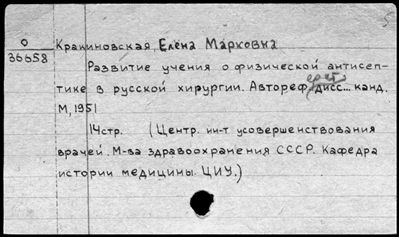 О
36658
Кракиновская, Елена Марковна
Развитие учения о физической антисеп-
тике в русской хирургии. Автореферат дисс... канд.
М, 1951
14стр. (Центр. ин-т усовершенствования
врачей. М-ва здравоохранения СССР. Кафедра
истории медицины. ЦИУ.)